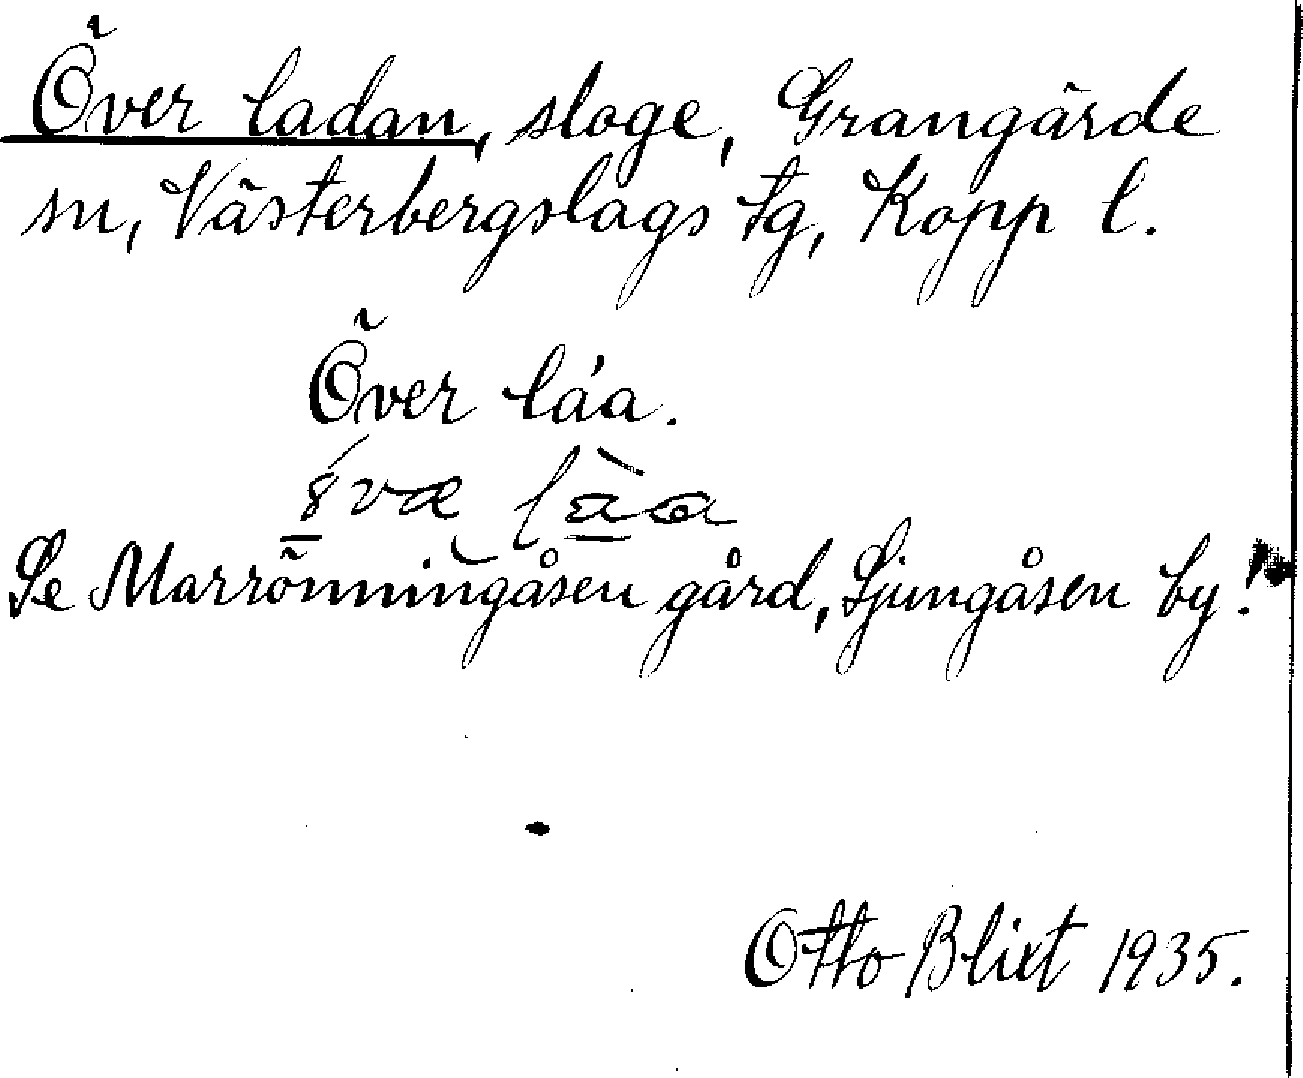 Över ladan, sloge, Grangärde
sn, Västerbergslags tg, Kopp l.
Över láa.
Se Marrönningåsen gård, Ljungåsen by!
Otto Blixt 1935.